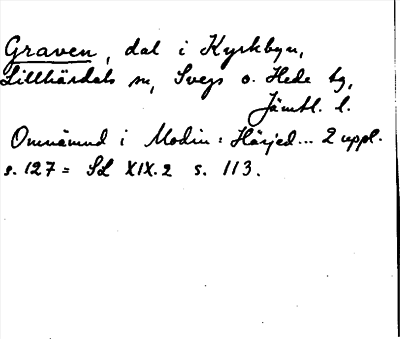 Graven, dal i Kyrkbyn,
Lillhärdals sn, Svegs o. Hede tg,
Jämtl. l.
Omnämnd i Modin: Härjed... 2 uppl.
s. 127 = SL XIX.2 s. 113.